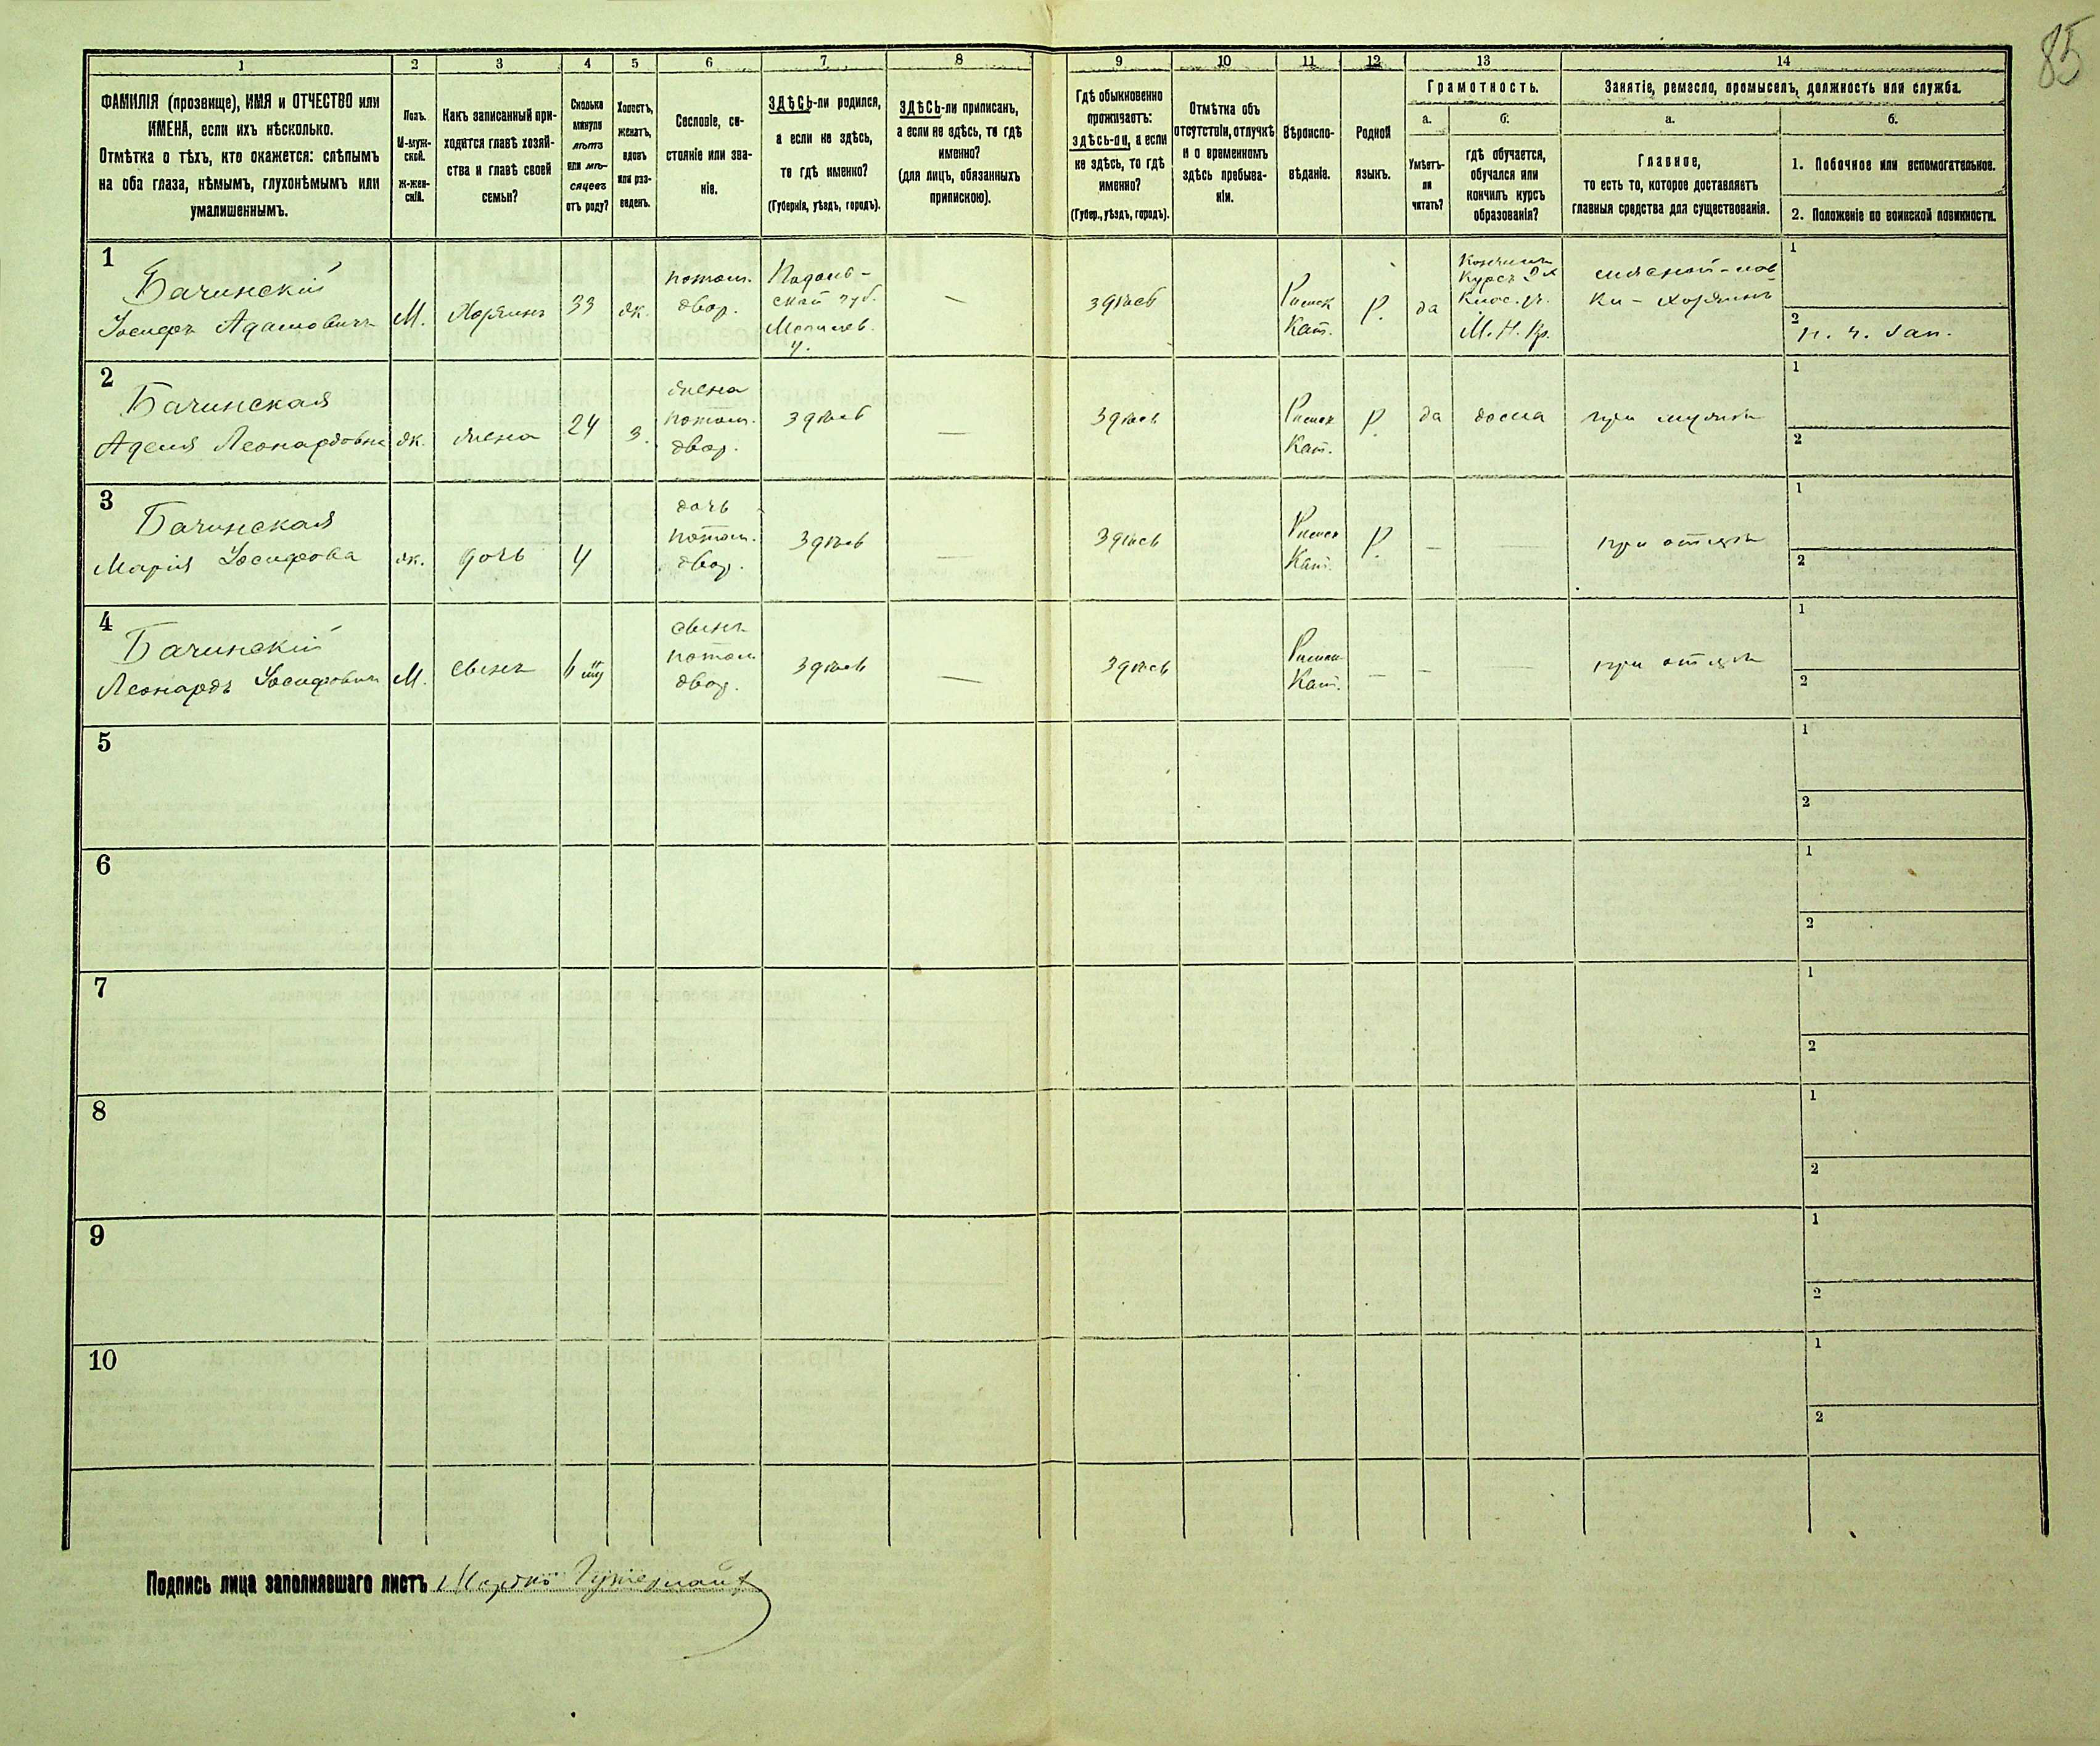 85
1 2 3 4 5 6 7 8 9 10 11 12 13 14
ФАМИЛІЯ (прозвище), ИМЯ и ОТЧЕСТВО или
ИМЕНА, если ихъ нѣсколько.
Отмѣтка о тѣхъ, кто окажется: слѣпымъ
на оба глаза, нѣмымъ, глухонѣмымъ или
умалишеннымъ.
Полъ.
М-муж-
ской.
Ж-жен-
скій.
Какъ записанный при-
ходится главѣ хозяй-
ства и главѣ своей
семьи?
Сколько
минуло
лѣтъ
или мѣ-
сяцевъ
отъ роду?
Холостъ,
женатъ,
вдовъ
или раз-
веденъ.
Сословіе, со-
стояніе или зва-
ніе.
ЗДѢСЬ-ли родился,
а если не здѣсь,
то гдѣ именно?
(Губернія, уѣздъ, городъ).
ЗДѢСЬ-ли приписанъ,
а если не здѣсь, то гдѣ
именно?
(для лицъ, обязанныхъ
припискою).
Гдѣ обыкновенно
проживаетъ:
здѣсь-ли, а если
не здѣсь, то гдѣ
именно?
(Губер., уѣздъ, городъ).
Отмѣтка объ
отсутствіи, отлучкѣ
и о временномъ
здѣсь пребыва-
ніи.
Вѣроиспо-
вѣданіе.
Родной
языкъ.
Грамотность.
а.
Умѣетъ-
ли
читать?
б.
гдѣ обучается,
обучался или
кончилъ курсъ
образованія?
Занятіе, ремесло, промыселъ, должность или служба.
а.
Главное,
то есть то, которое доставляетъ
главныя средства для существованія.
б.
1. Побочное или вспомогательное.
2. Положеніе по воинской повинности.
1
Бачинскій
Іосифъ Адамовичъ
М.
Хозяинъ
33
ж.
потом.
двор.
Подоль-
ской губ.
Могилев.
у.
—
здѣсь
Римск
Кат.
Р.
да
Кончилъ
Курсъ
М. Н. Пр.
хозяинъ
1
2
2
Бачинская
Аделя Леонардовна
ж.
жена
24
з.
жена
потом.
двор.
здѣсь
—
здѣсь
Римск
Кат.
Р.
да
дома
при мужѣ
1
2
3
Бачинская
Марія Іосифова
ж.
дочь
4
дочь
потом.
двор.
здѣсь
—
здѣсь
Римск
Кат.
Р.
—
—
при отцѣ
1
2
4
Бачинскій
Леонардъ Іосифовичъ
М.
сынъ
сынъ
потом
двор.
здѣсь
—
здѣсь
Римск
Кат.
—
—
—
при отцѣ
1
2
5
1
2
6
1
2
7
1
2
8
1
2
9
1
2
10
1
2
Подпись лица заполнявшаго листъ